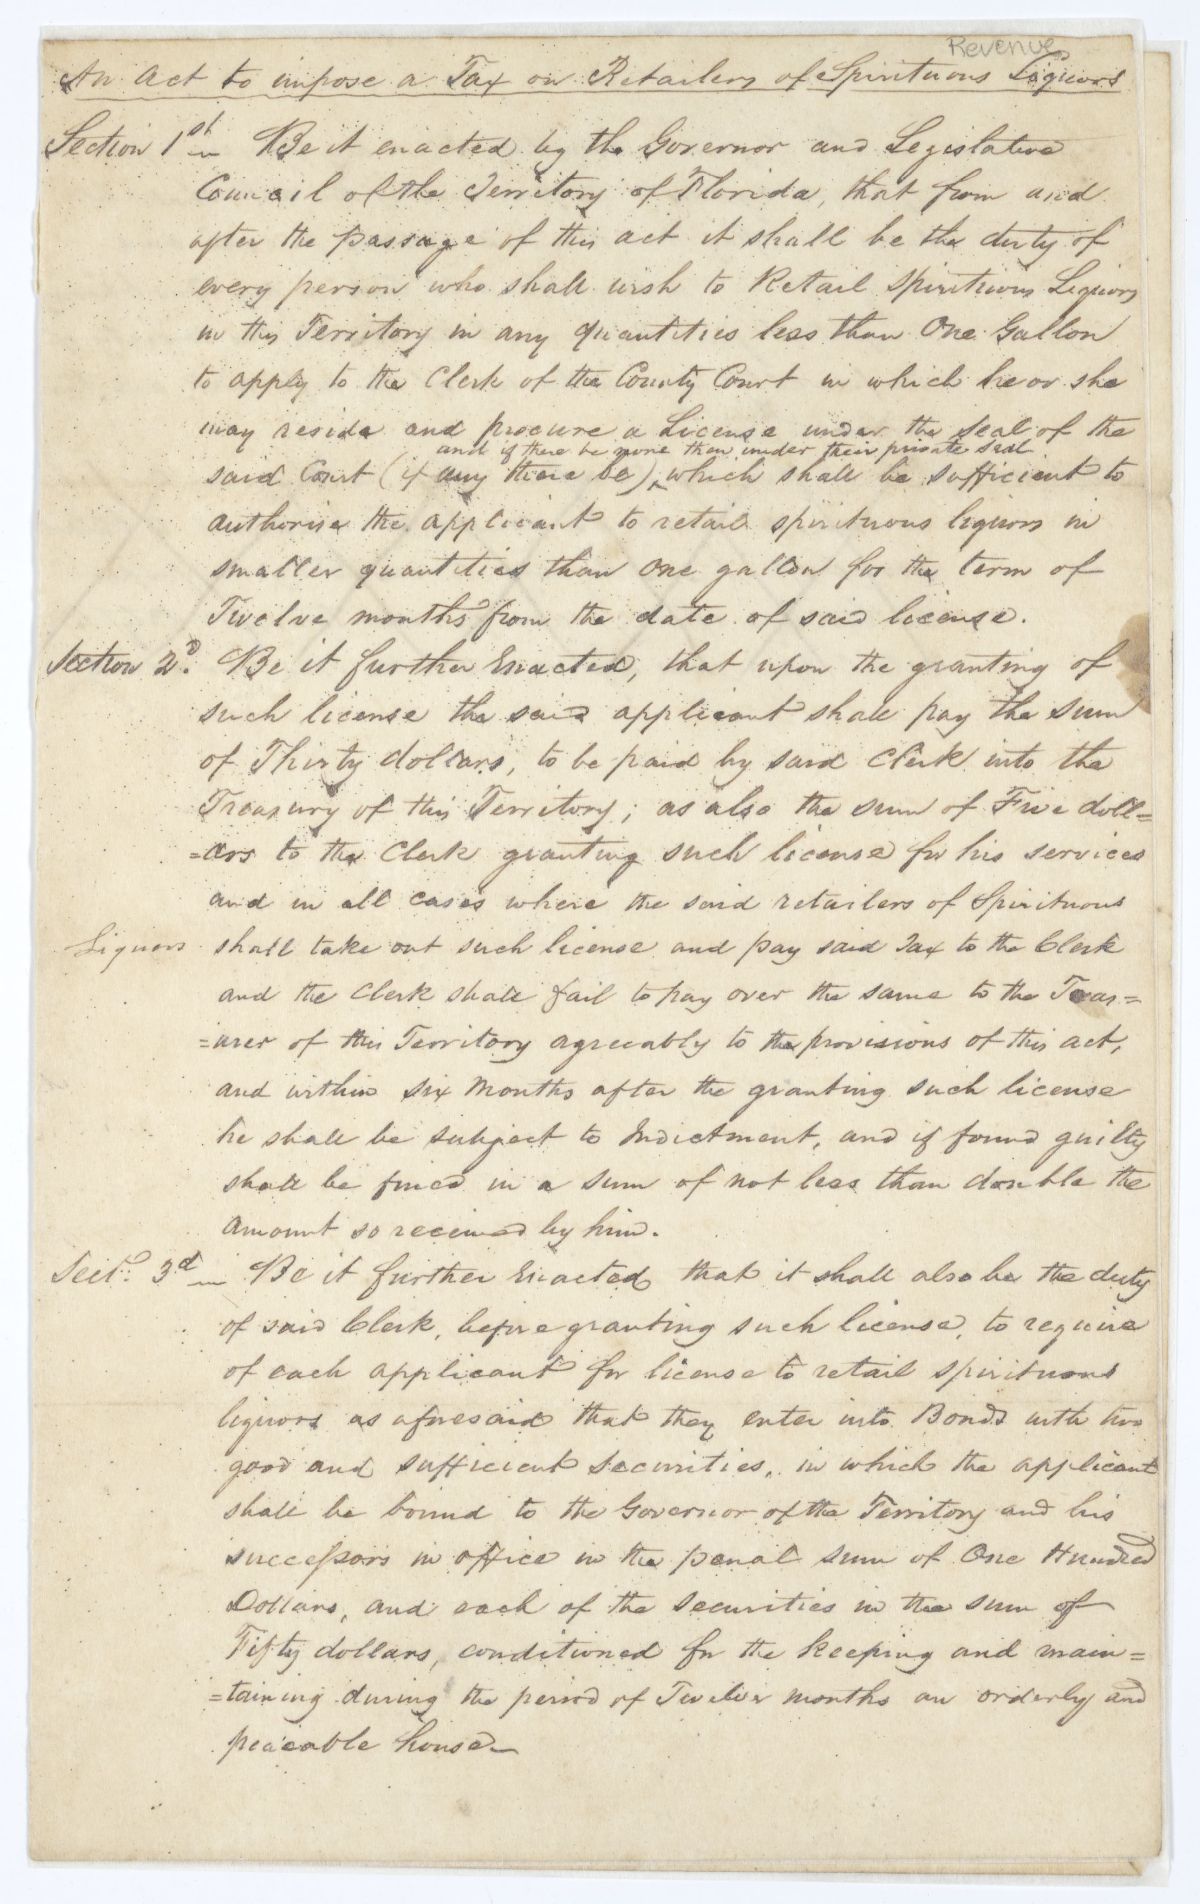 Revenue
An Act to impose a Tax on Retailers of Spirituous Liquors
Section 1st Be it enacted by the Governor and Legislative
Council of the Territory of Florida, that from and
after the passage of this act it shall be the duty of
every person who shall wish to Retail Spirituous Liquors
in this Territory in any quantities less than One Gallon
to apply to the Clerk of the County Court in which he or she
may reside and procure a License under the Seal of the
and if there be none then under their private seal
said Court (if any there be), which shall be sufficient to
authorise the applicant to retail spirituous liquors in
smaller quantities than one gallon for the term of
Twelve months from the date of said license.
Section 2d. Be it further Enacted, that upon the granting of
such license the said applicant shall pay the sum
of Thirty dollars, to be paid by said Clerk into the
Treasury of this Territory; as also the sum of Five doll=
=ars to the Clerk granting such license for his services
and in all cases where the said retailers of Spirituous
Liquors shall take out such license and pay said Tax to the Clerk
and the Clerk shall fail to pay over the same to the Treas=
=urer of this Territory agreeably to the provisions of this act,
and within six Months after the granting such license
he shall be subject to Indictment, and if found guilty
shall be fined in a sum of not less than double the
amount so received by him.
Sect. 3d Be it further Enacted that it shall also be the duty
of said Clerk, before granting such license, to require
of each applicant for license to retail spirituous
liquors as aforesaid that they enter into Bonds with two
good and sufficient securities, in which the applicant
shall be bound to the Governor of the Territory and his
successors in office in the penal sum of One Hundred
Dollars, and each of the securities in the sum of
Fifty dollars, conditioned for the keeping and main=
=taining during the period of Twelve months an orderly and
peaceable house